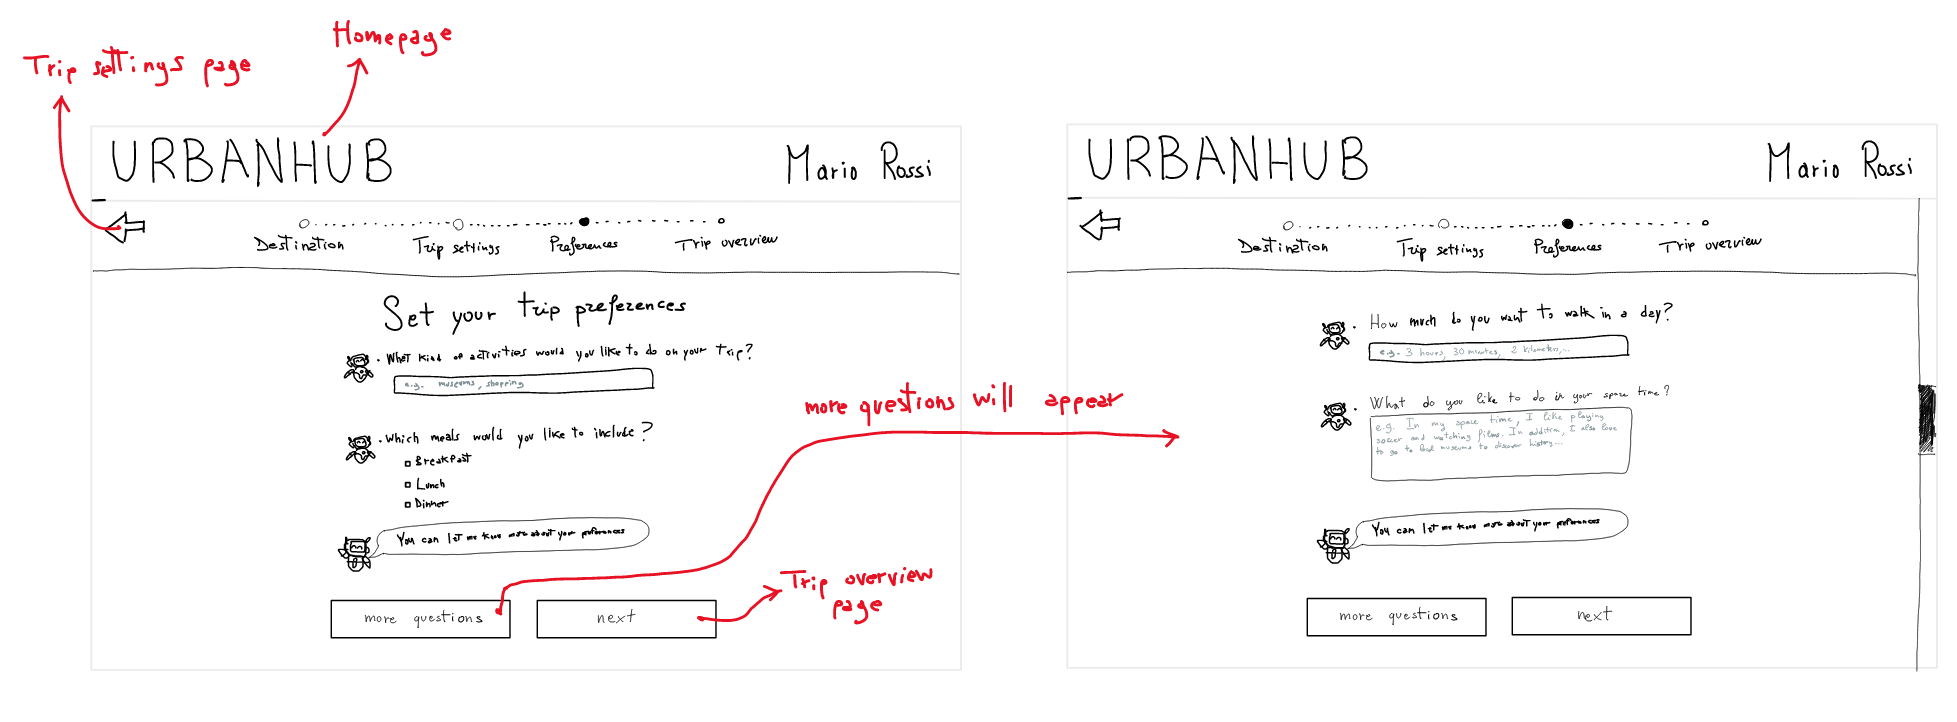 Homepage
Trip settings page
URBANHUB
Mario Rossi
Destination
Trip settings
Preferences
Trip overview
Set your trip preferences
• What kind of activities would you like to do on your trip?
e.g. museums, shopping
• Which meals would you like to include?
Breakfast
Lunch
Dinner
You can let me know more about your preferences
more questions
next
more questions will appear
Trip overview
page
URBANHUB
Mario Rossi
Destination
Trip settings
Preferences
Trip overview
• How much do you want to walk in a day?
e.g. 3 hours, 30 minutes, 2 kilometers,...
• What do you like to do in your spare time?
e.g. In my spare time, I like playing
soccer and watching films. In addition, I also love
to go to local museums to discover history...
You can let me know more about your preferences
more questions
next